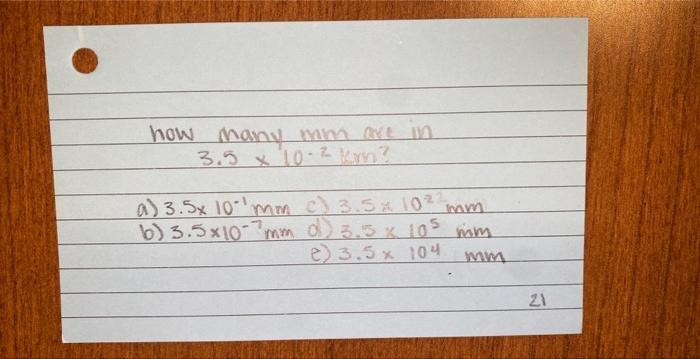 how many mm are in
3.5 x 10-2 km?
a) 3.5x 10-1 mm c) 3.5 x 10 22 mm
b) 3.5x10-7 mm d) 3.5 x 105 mm
e) 3.5 x 104 mm
21